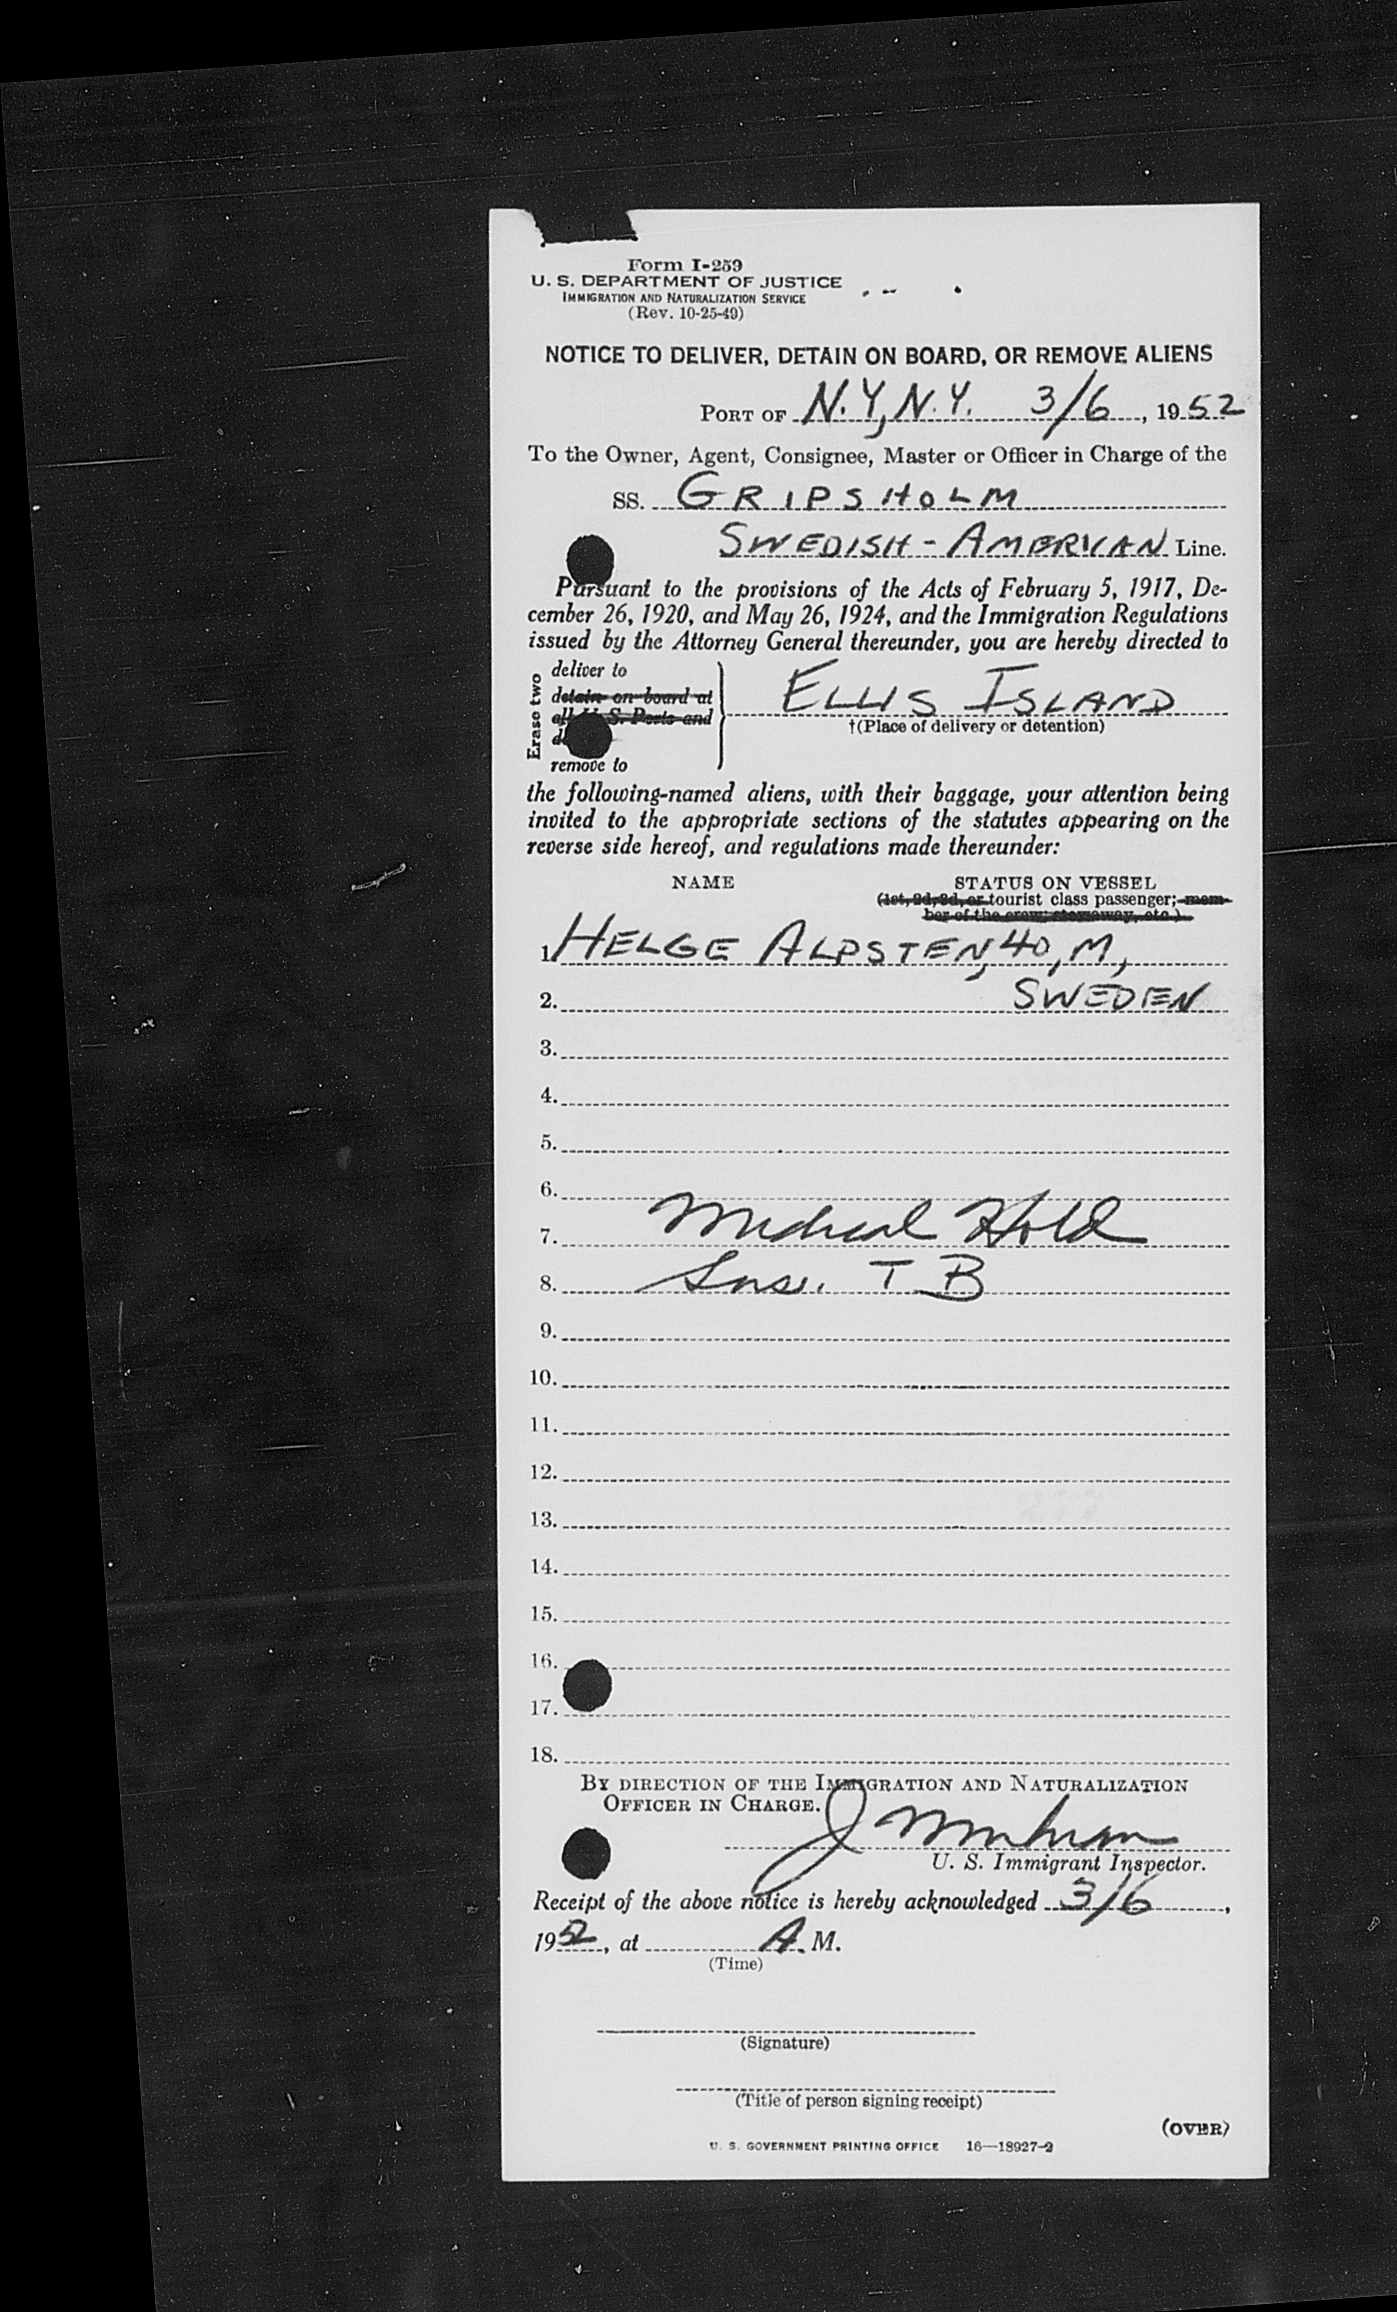 Form I-259
U. S. DEPARTMENT OF JUSTICE
IMMIGRATION AND NATURALIZATION SERVICE
(Rev. 10-25-49)
NOTICE TO DELIVER, DETAIN ON BOARD, OR REMOVE ALIENS
PORT OF N.Y., N.Y. 3/6, 1952
To the Owner, Agent, Consignee, Master or Officer in Charge of the
SS. GRIPSHOLM
SWEDISH-AMERICAN Line.
Pursuant to the provisions of the Acts of February 5, 1917, De-
cember 26, 1920, and May 26, 1924, and the Immigration Regulations
issued by the Attorney General thereunder, you are hereby directed to
Erase two
deliver to
detain on board at
all U. S. Ports and
remove to
ELLIS ISLAND
†(Place of delivery or detention)
the following-named aliens, with their baggage, your attention being
invited to the appropriate sections of the statutes appearing on the
reverse side hereof, and regulations made thereunder:
NAME STATUS ON VESSEL
(1st, 2d, 3d, or tourist class passenger; mem-
ber of the crew; stowaway, etc.)
1. HELGE ALPSTEN, 40, M,
2. SWEDEN
3.
4.
5.
6.
7. Medical Hold
8. Sus. T B
9.
10.
11.
12.
13.
14.
15.
16.
17.
18.
BY DIRECTION OF THE IMMIGRATION AND NATURALIZATION
OFFICER IN CHARGE.
U. S. Immigrant Inspector.
Receipt of the above notice is hereby acknowledged 3/6,
1952, at A. M.
(Time)
(Signature)
(Title of person signing receipt)
(OVER)
U. S. GOVERNMENT PRINTING OFFICE 16—18927-2